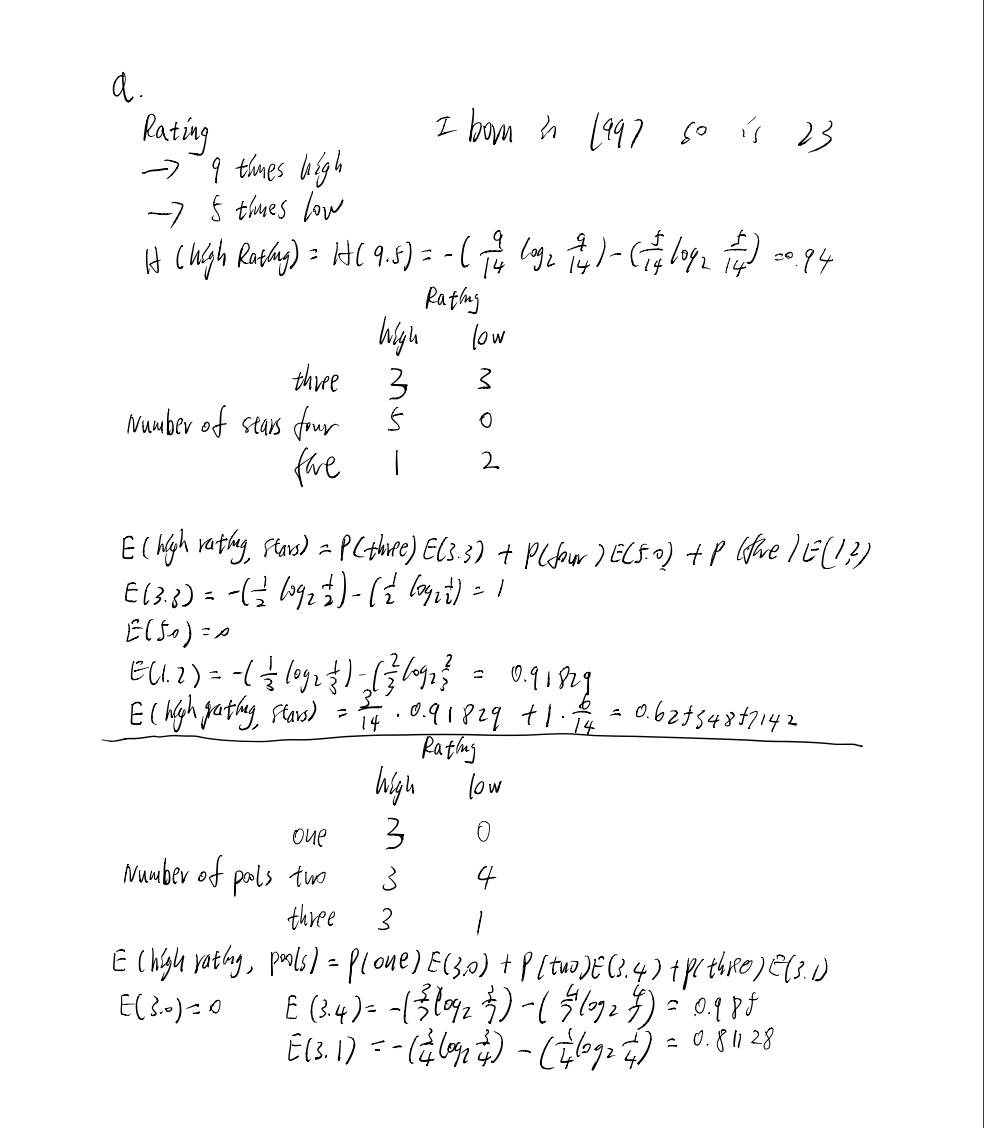 a.
Rating I born in 1997 so is 23
→ 9 times high
→ 5 times low
H (high Rating) = H(9.5) = -( 9/14 log₂ 9/14 ) - ( 5/14 log₂ 5/14 ) = 0.94
Rating
high low
three 3 3
Number of stars four 5 0
five 1 2
E (high rating, stars) = P(three) E(3.3) + P(four) E(5.0) + P (five) E(1,2)
E(3.3) = -( 1/2 log₂ 1/2 ) - ( 1/2 log₂ 1/2 ) = 1
E(5.0) = 0
E(1.2) = -( 1/3 log₂ 1/3 ) - ( 2/3 log₂ 2/3 = 0.91829
E (high rating, stars) = 3/14 · 0.91829 + 1 · 6/14 = 0.62534857142
Rating
high low
one 3 0
Number of pools two 3 4
three 3 1
E (high rating, pools) = P(one) E(3,0) + P(two) E(3.4) + P(three) E(3.1)
E(3.0) = 0 E (3.4) = -( 3/7 log₂ 3/7 ) - ( 4/7 log₂ 4/7 ) = 0.985
E(3.1) = -( 3/4 log₂ 3/4 ) - ( 1/4 log₂ 1/4 ) = 0.81128